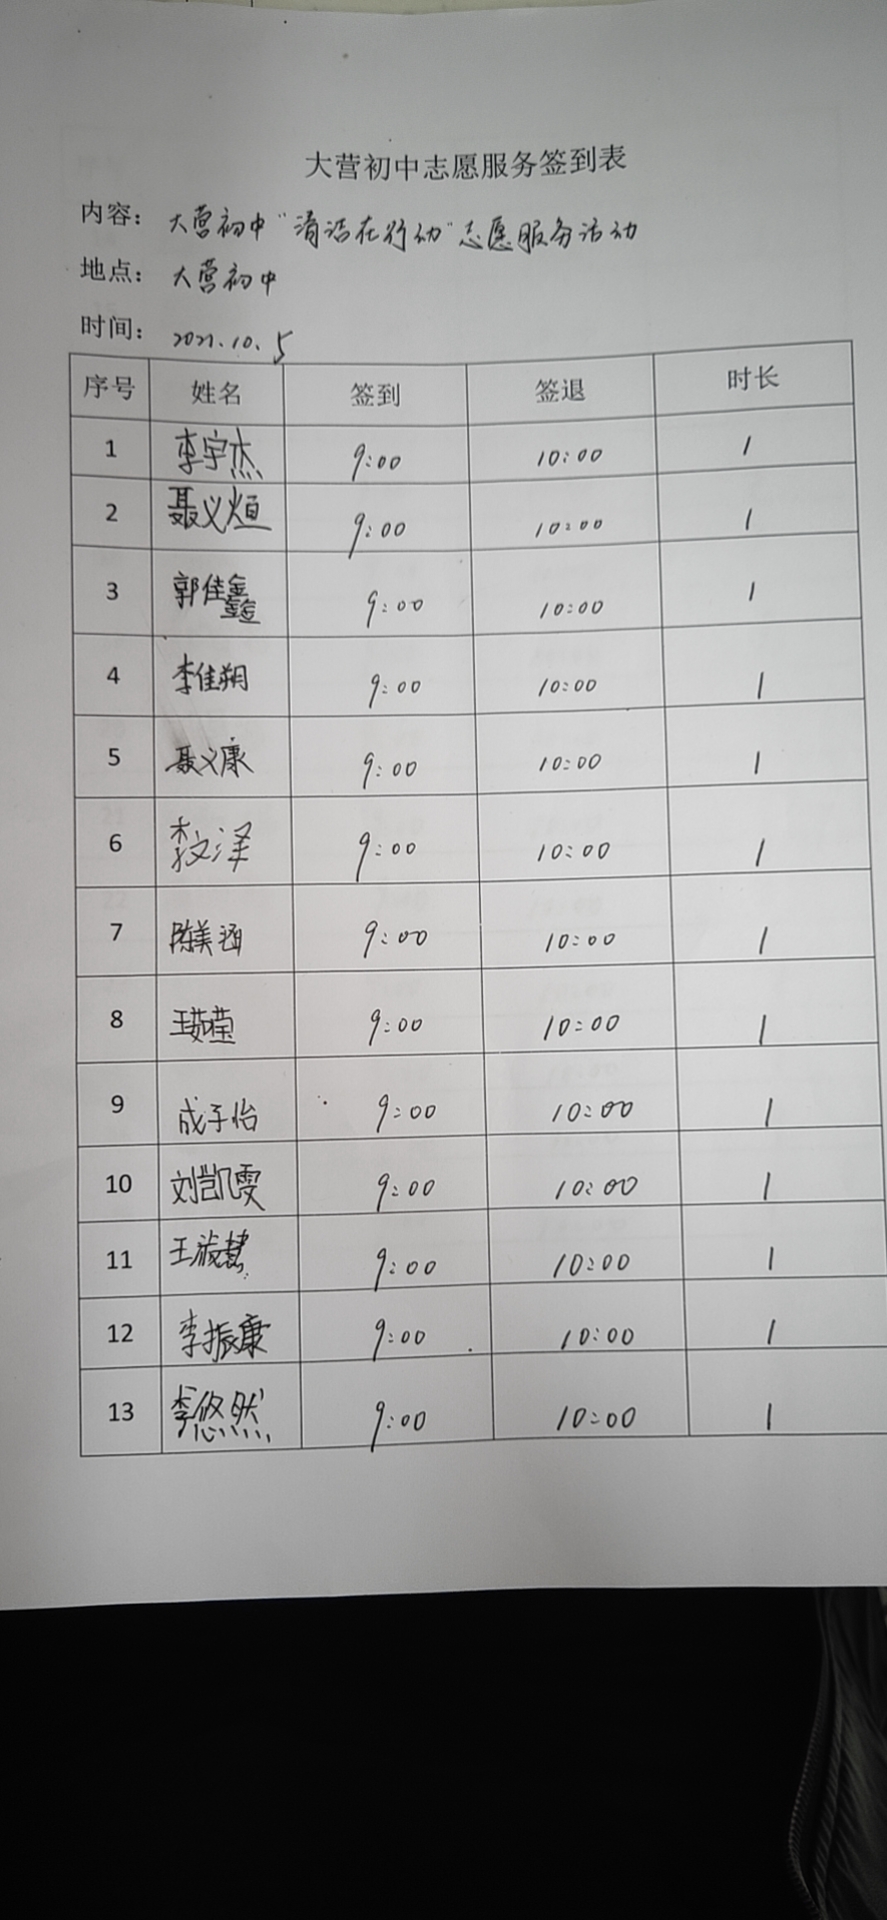 大营初中志愿服务签到表
内容： 大营初中“清洁在行动”志愿服务活动
地点： 大营初中
时间： 2021.10.5
序号 姓名 签到 签退 时长
1 李宇杰 9:00 10:00 1
2 聂义烜 9:00 10:00 1
3 郭佳鑫 9:00 10:00 1
4 李佳朔 9:00 10:00 1
5 聂义康 9:00 10:00 1
6 李文泽 9:00 10:00 1
7 陈美涵 9:00 10:00 1
8 王茹莹 9:00 10:00 1
9 成子怡 9:00 10:00 1
10 刘凯雯 9:00 10:00 1
11 王淑慧 9:00 10:00 1
12 李振康 9:00 10:00 1
13 李悠然 9:00 10:00 1